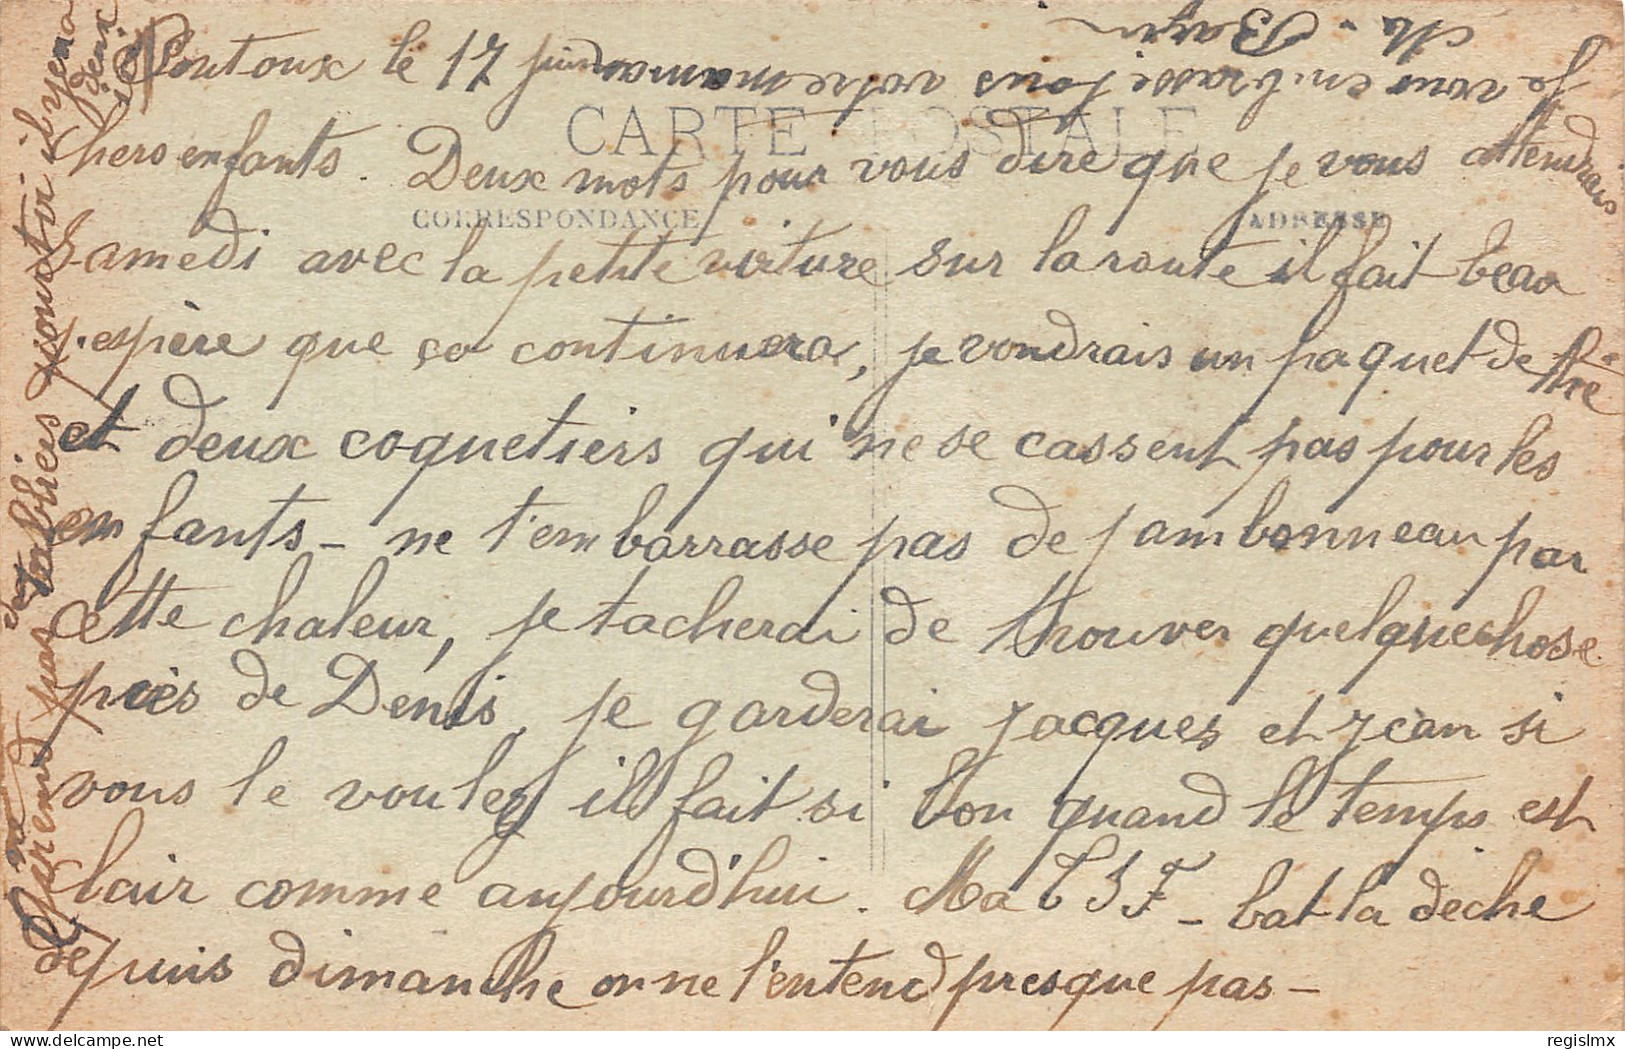 Pontoux le 17 juin
CARTE POSTALE
chers enfants. Deux mots pour vous dire que je vous attendrais
CORRESPONDANCE
ADRESSE
Samedi avec la petite voiture sur la route il fait beau
j'espère que ça continuera, je voudrais un paquet de thé
et deux coquetiers qui ne se cassent pas pour les
enfants - ne t'embarrasse pas de jambonneau par
cette chaleur, je tacherai de trouver quelque chose
près de Denis, je garderai Jacques et Jean si
vous le voulez il fait si bon quand le temps est
clair comme aujourd'hui. Ma TSF - bat la dèche
depuis dimanche on ne l'entend presque pas -
ne prend pas tabliers pour toi il y en a
deux ici
Je vous embrasse tous votre maman
M. Bazin
regislmx